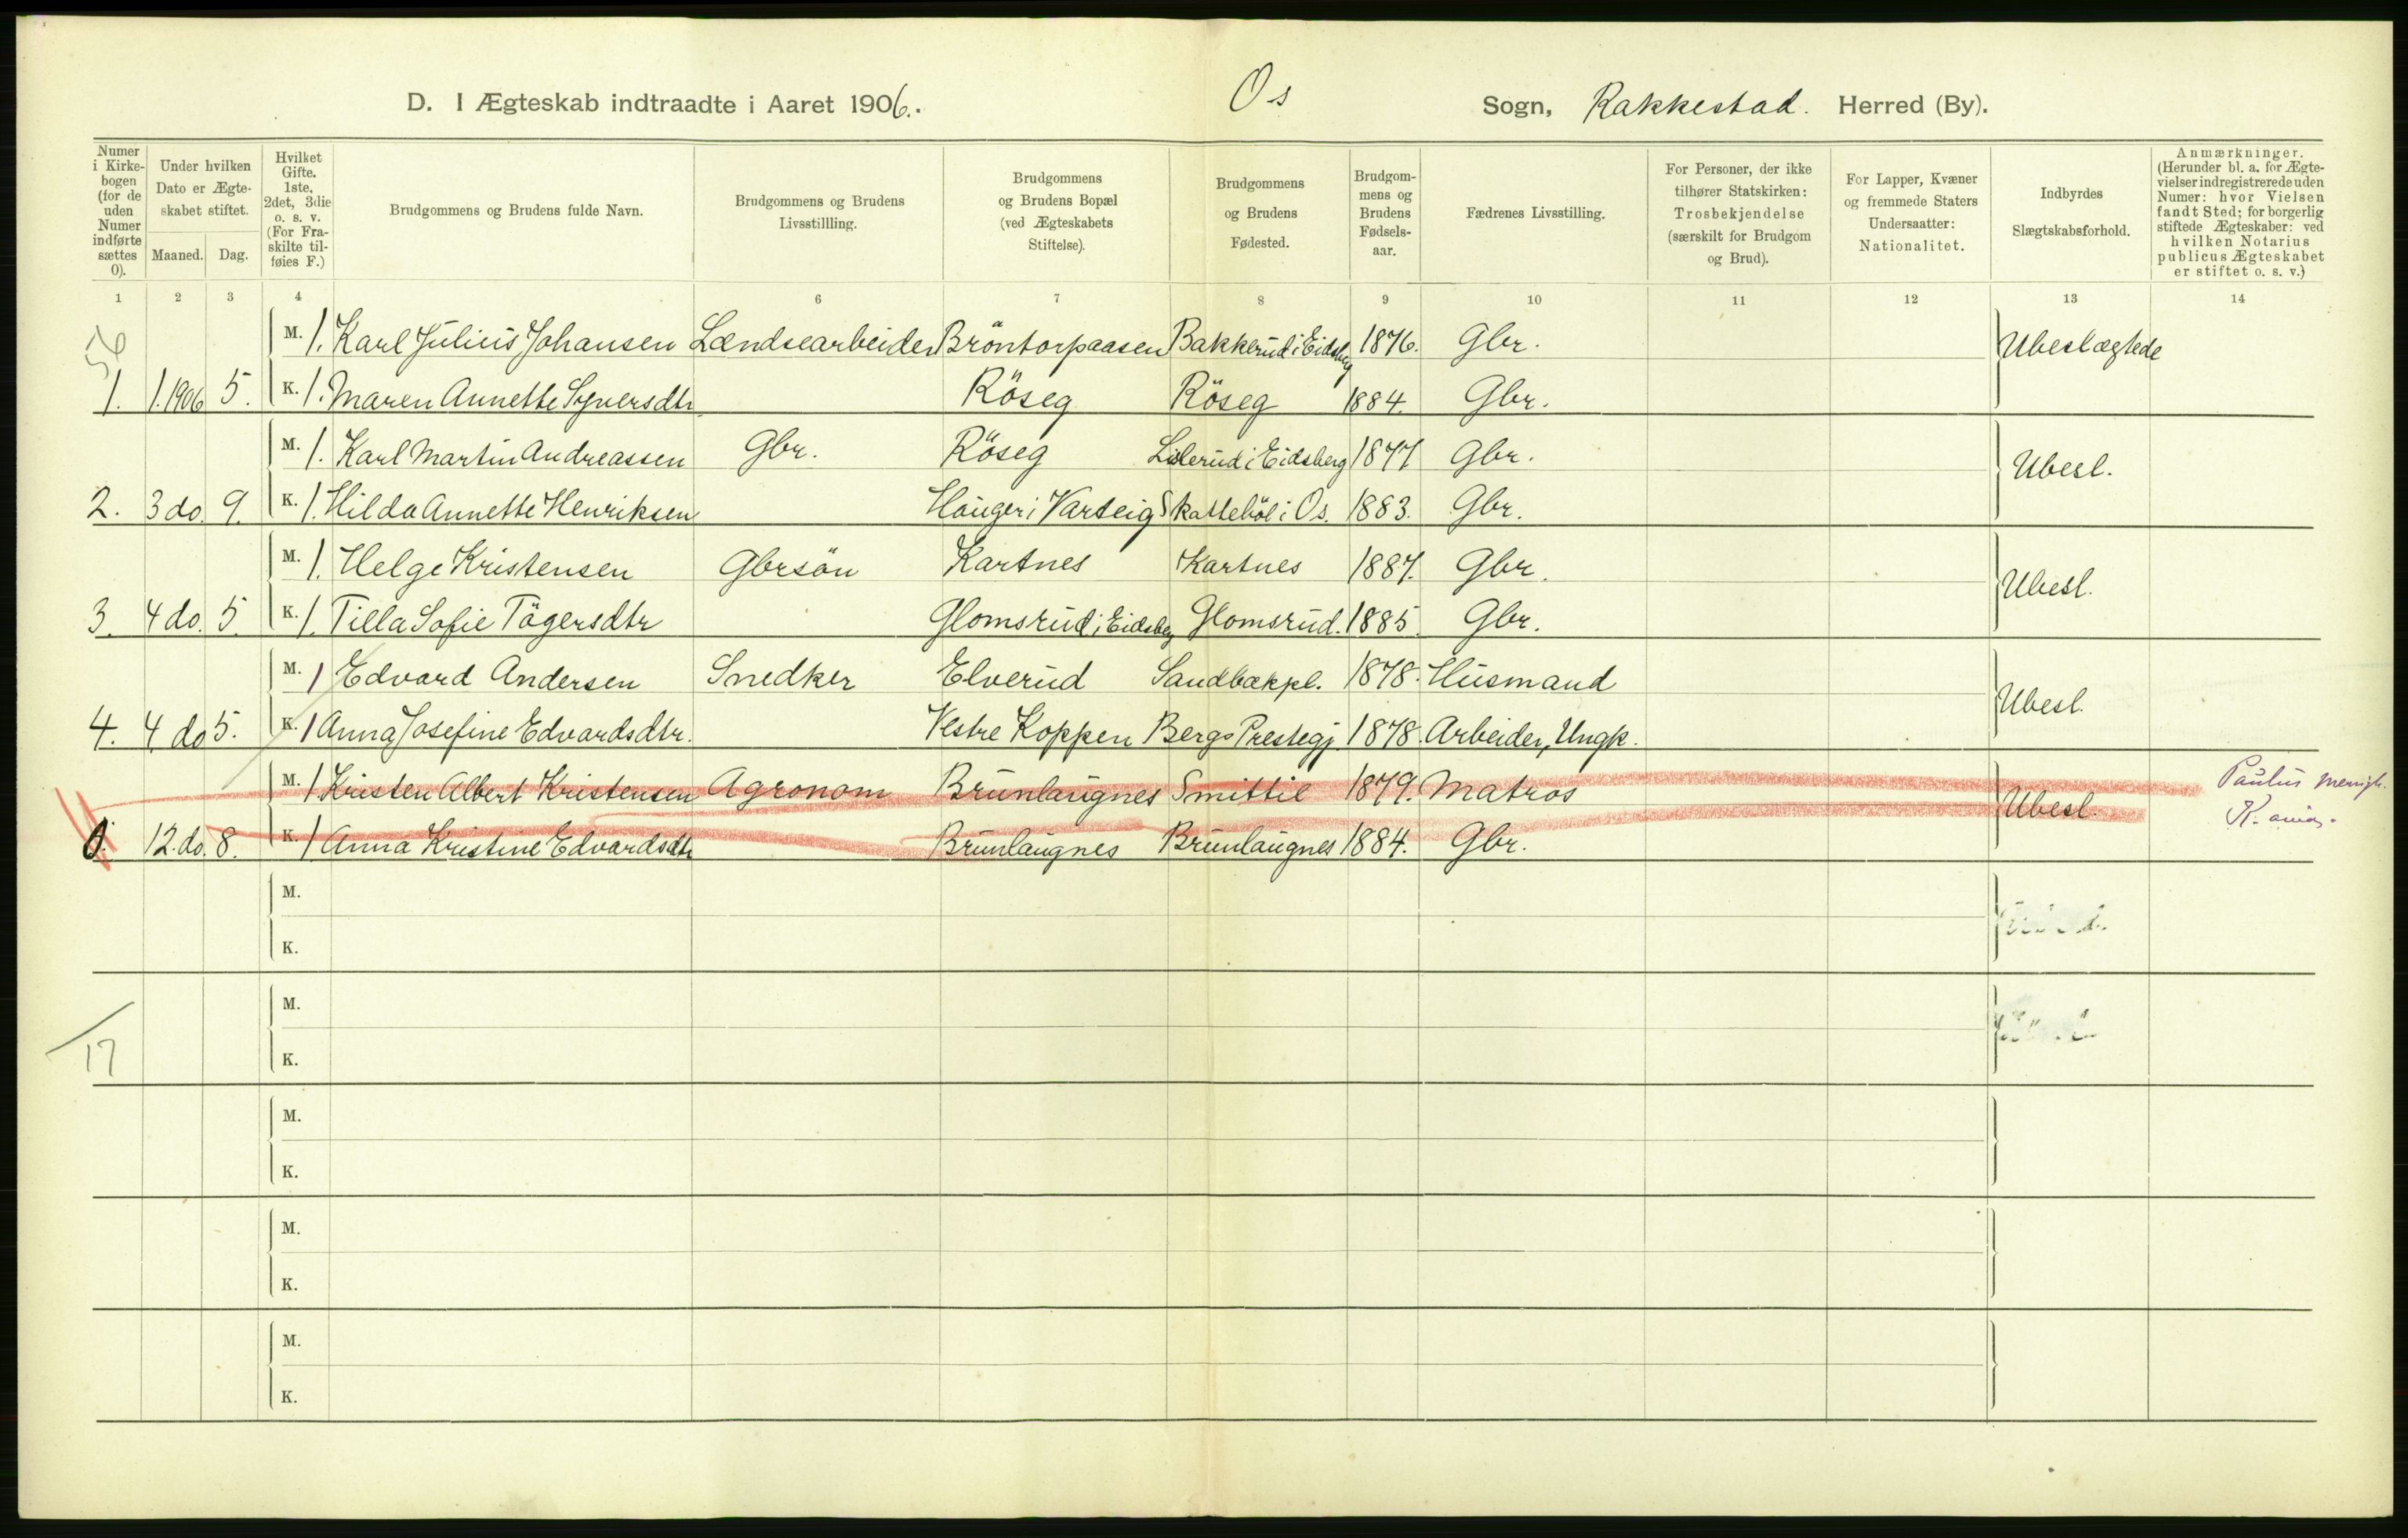 D. I Ægteskab indtraadte i Aaret 1906. Os Sogn, Rakkestad. Herred (By).
Numer i Kirke-bogen (for de uden Numer indførte sættes 0).
Under hvilken Dato er Ægte-skabet stiftet.
Maaned. Dag.
Hvilket Gifte. 1ste, 2det, 3die o. s. v. (For Fra-skilte til-føies F.)
Brudgommens og Brudens fulde Navn.
Brudgommens og Brudens Livsstillling.
Brudgommens og Brudens Bopæl (ved Ægteskabets Stiftelse).
Brudgommens og Brudens Fødested.
Brudgom-mens og Brudens Fødsels-aar.
Fædrenes Livsstilling.
For Personer, der ikke tilhører Statskirken: Trosbekjendelse (særskilt for Brudgom og Brud).
For Lapper, Kvæner og fremmede Staters Undersaatter: Nationalitet.
Indbyrdes Slægtskabsforhold.
Anmærkninger. (Herunder bl. a. for Ægte-vielser indregistrerede uden Numer: hvor Vielsen fandt Sted; for borgerlig stiftede Ægteskaber: ved hvilken Notarius publicus Ægteskabet er stiftet o. s. v.)
1 2 3 4 6 7 8 9 10 11 12 13 14
56
M. 1. Karl Julius Johansen Lændsearbeider Bröntorpaasen Bakkerud i Eidsberg 1876. Gbr. Ubeslægtede
1. 1.1906 5. K. 1. Maren Annette Syversdtr. Röseg Röseg 1884. Gbr.
M. 1. Karl Martin Andreassen Gbr. Röseg Lilerud i Eidsberg 1877 Gbr. Ubesl.
2. 3 do. 9. K. 1. Hilda Annette Henriksen Hauger i Varteig Skatteböl i Os. 1883. Gbr.
M. 1. Helge Kristensen Gbrsön Kartnes Kartnes 1887. Gbr. Ubesl.
3. 4 do. 5. K. 1. Tilla Sofie Tögersdtr Glomsrud i Eidsberg Glomsrud. 1885. Gbr.
M. 1 Edvard Andersen Snedker Elverud Sandbækpl. 1878. Husmand Ubesl.
4. 4 do 5. K. 1 Anna Josefine Edvardsdtr. Vestre Koppen Bergs Prestegj. 1878. Arbeider, Ungk.
M. 1. Kristen Albert Kristensen Agronom Brunlaugnes Smittil 1879. Matros Ubesl. Paulus menigh.
0. 12. do. 8. K. 1 Anna Kristine Edvardsdtr Brunlaugnes Brunlaugnes 1884. Gbr. K.
M.
K.
M.
17 K.
M.
K.
M.
K.
M.
K.